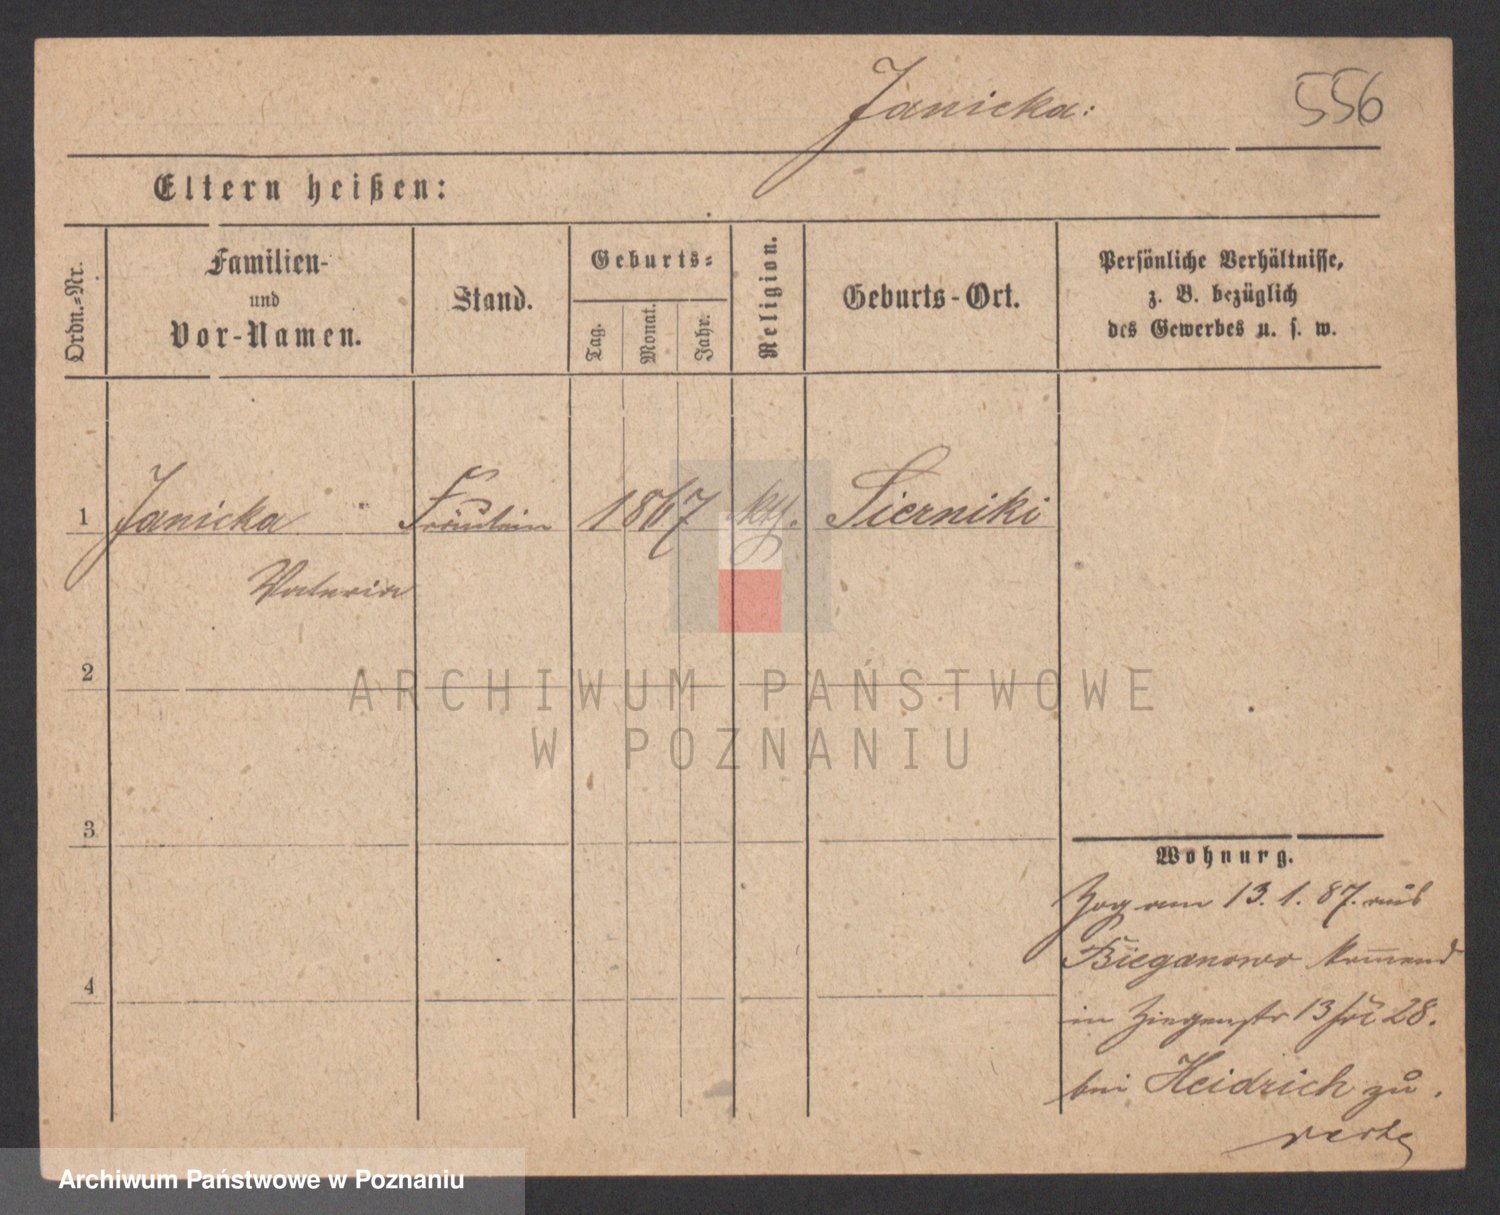 Janicka:
556
Eltern heißen:
Ordn.-Nr.
Familien-
und
Vor-Namen.
Stand.
Geburts-
Tag.
Monat.
Jahr.
Religion.
Geburts-Ort.
Persönliche Verhältnisse,
z. B. bezüglich
des Gewerbes u. s. w.
1 Janicka Fräulein 1867 kth. Sierniki
Valeria
2
3
4
Wohnung.
Zog am 13. 1. 87. aus
Bieganowo kommend
in Ziegenstr 13 28.
bei Heidrich zu.
ARCHIWUM PAŃSTWOWE
W POZNANIU
Archiwum Państwowe w Poznaniu